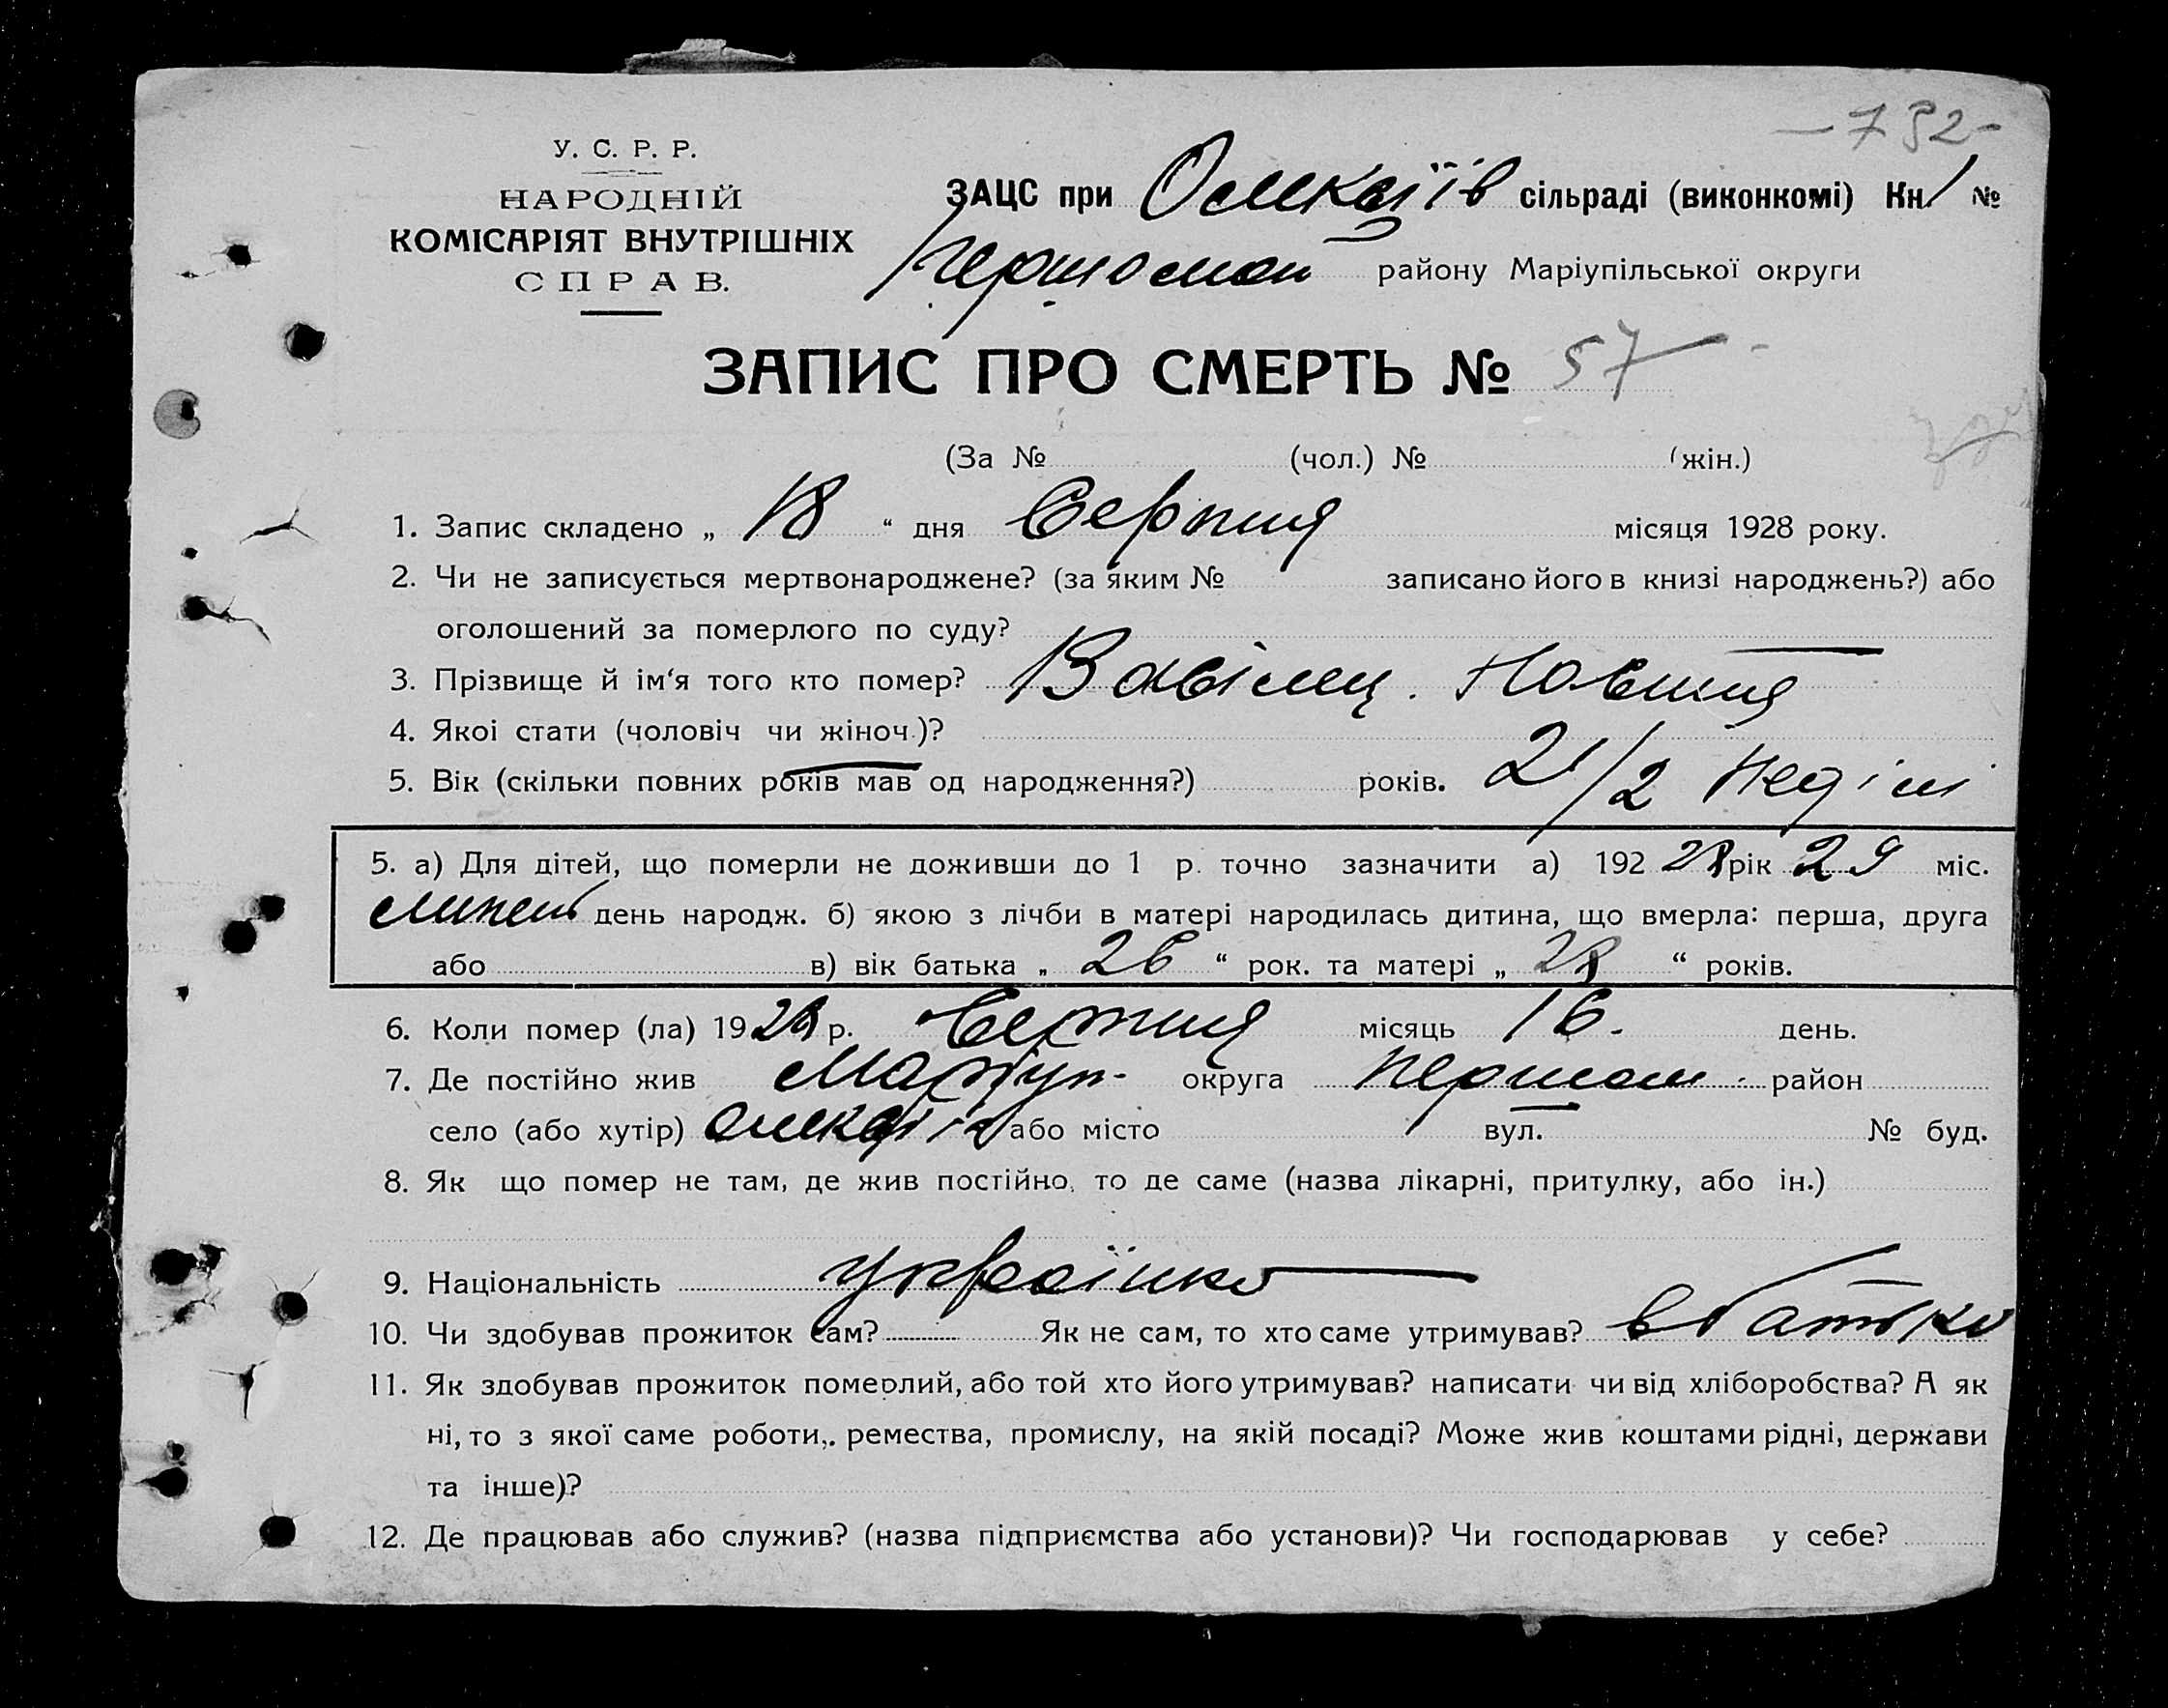 — 732 —
У. С. Р. Р.
НАРОДНІЙ
КОМІСАРІЯТ ВНУТРІШНІХ
СПРАВ.
ЗАЦС при сільраді (виконкомі) Кн 1 №
району Маріупільської округи
ЗАПИС ПРО СМЕРТЬ № 57
(За № (чол.) № (жін.)
1. Запис складено „ 18 “ дня Серпня місяця 1928 року.
2. Чи не записується мертвонароджене? (за яким № записано його в книзі народжень?) або
оголошений за померлого по суду?
3. Прізвище й ім‘я того кто помер?
4. Якоі стати (чоловіч чи жіноч.)?
5. Вік (скільки повних років мав од народження?) років. 2 1/2 неділі
5. а) Для дітей, що померли не доживши до 1 р. точно зазначити а) 192 28 рік 29 міс.
липень день народж. б) якою з лічби в матері народилась дитина, що вмерла: перша, друга
або в) вік батька „ 26 “ рок. та матері „ 28 “ років.
6. Коли помер (ла) 19 28 р. Серпня місяць 16. день.
7. Де постійно жив Маріуп- округа Першом район
село (або хутір) або місто вул. № буд.
8. Як що помер не там, де жив постійно, то де саме (назва лікарні, притулку, або ін.)
9. Національність Українка
10. Чи здобував прожиток сам? Як не сам, то хто саме утримував? батько
11. Як здобував прожиток померлий, або той хто його утримував? написати чи від хліборобства? А як
ні, то з якої саме роботи,. ремества, промислу, на якій посаді? Може жив коштами рідні, держави
та інше)?
12. Де працював або служив? (назва підприємства або установи)? Чи господарював у себе?